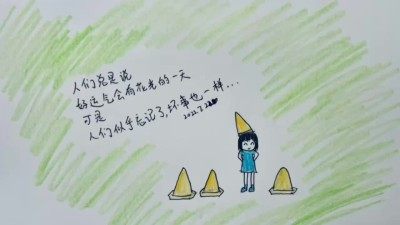 人们总是说
好运气会有花光的一天
可是
人们似乎忘记了,坏事也一样...